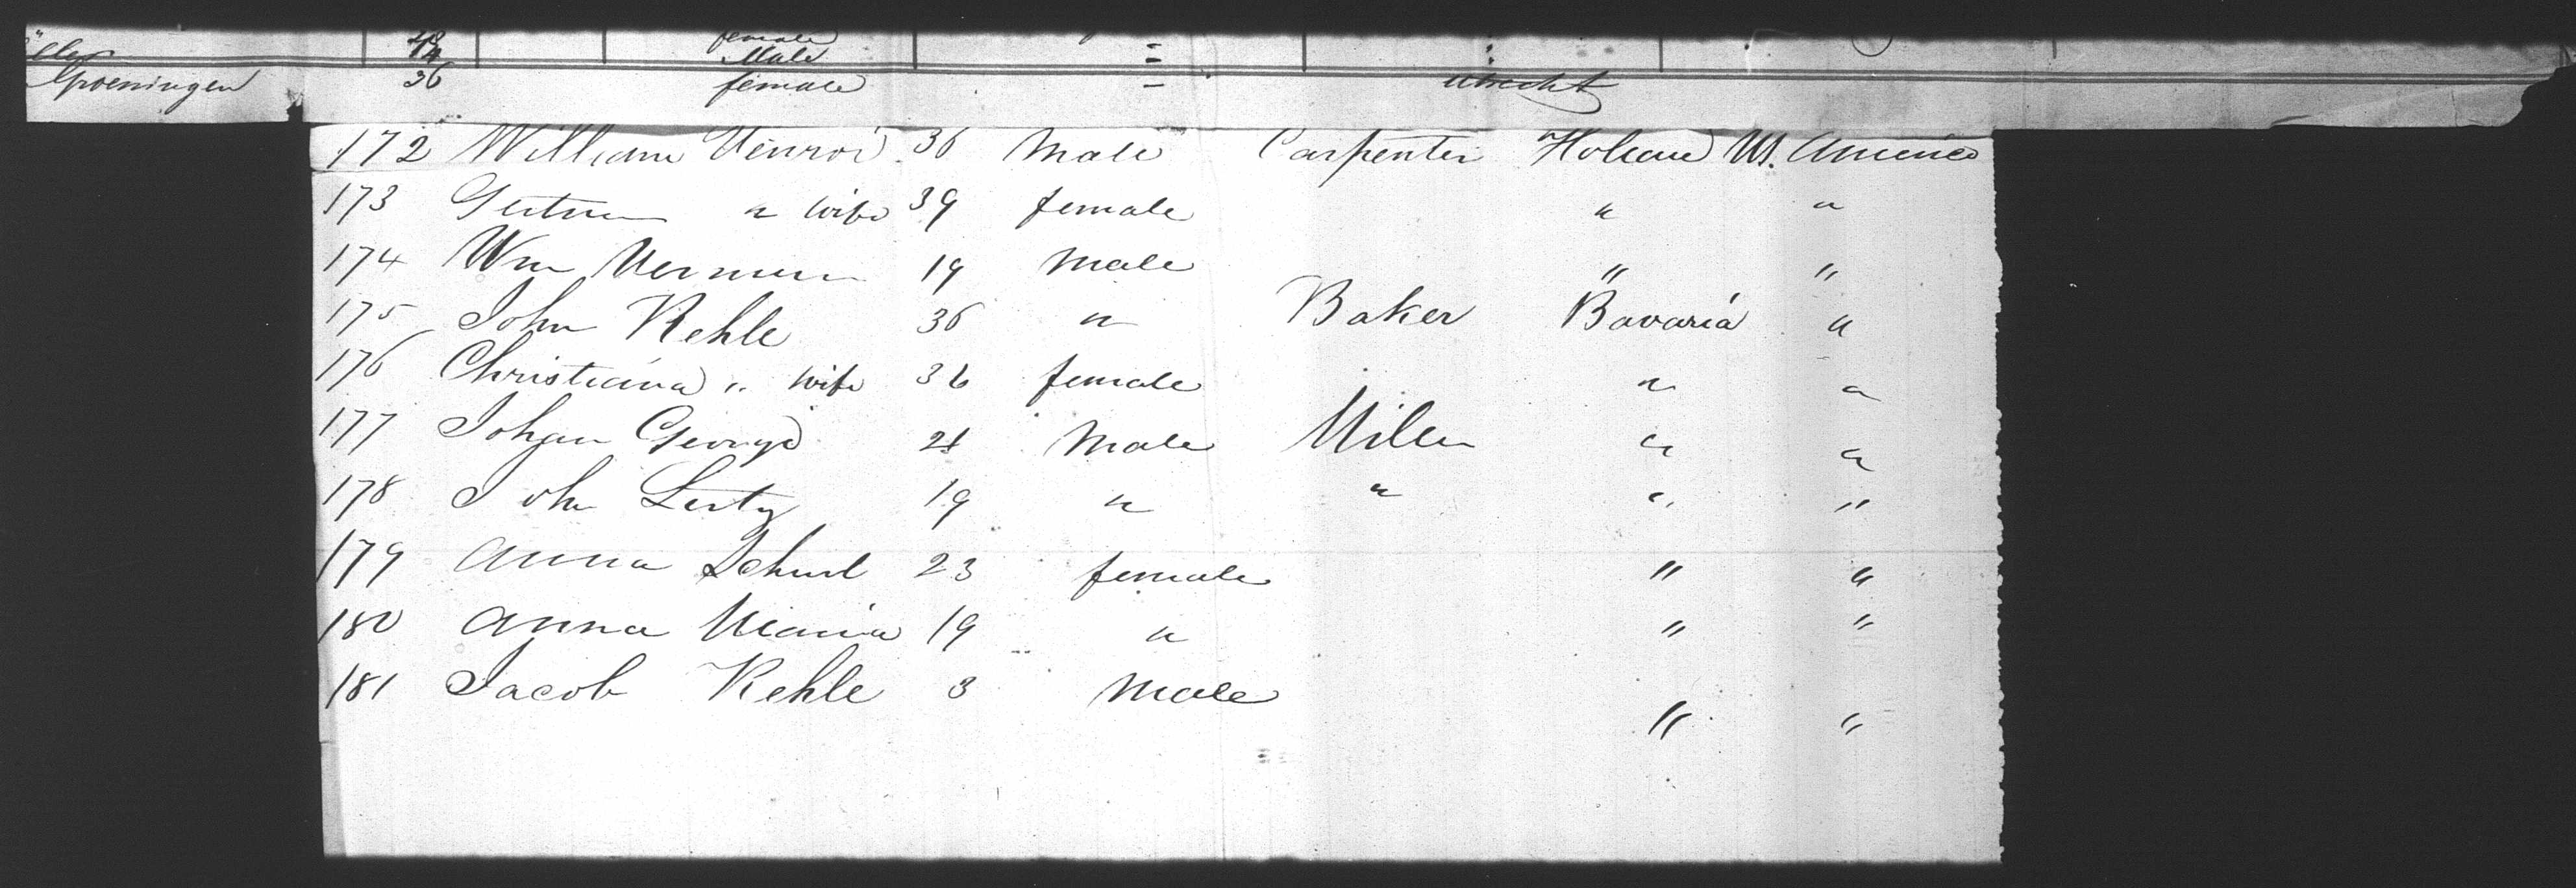 48 female
14 Male "
Groeningen 26 female " Utrecht
172 William 36 Male Carpenter Holland N. America
173 " wife 39 female " "
174 Wm 19 Male " "
175 John Kehle 36 " Baker Bavaria "
176 Christiana " wife 36 female " "
177 Johan George 21 Male Miller " "
178 John 19 " " " "
179 Anna 23 female " "
180 Anna Maria 19 " " "
181 Jacob Kehle 3 Male " "